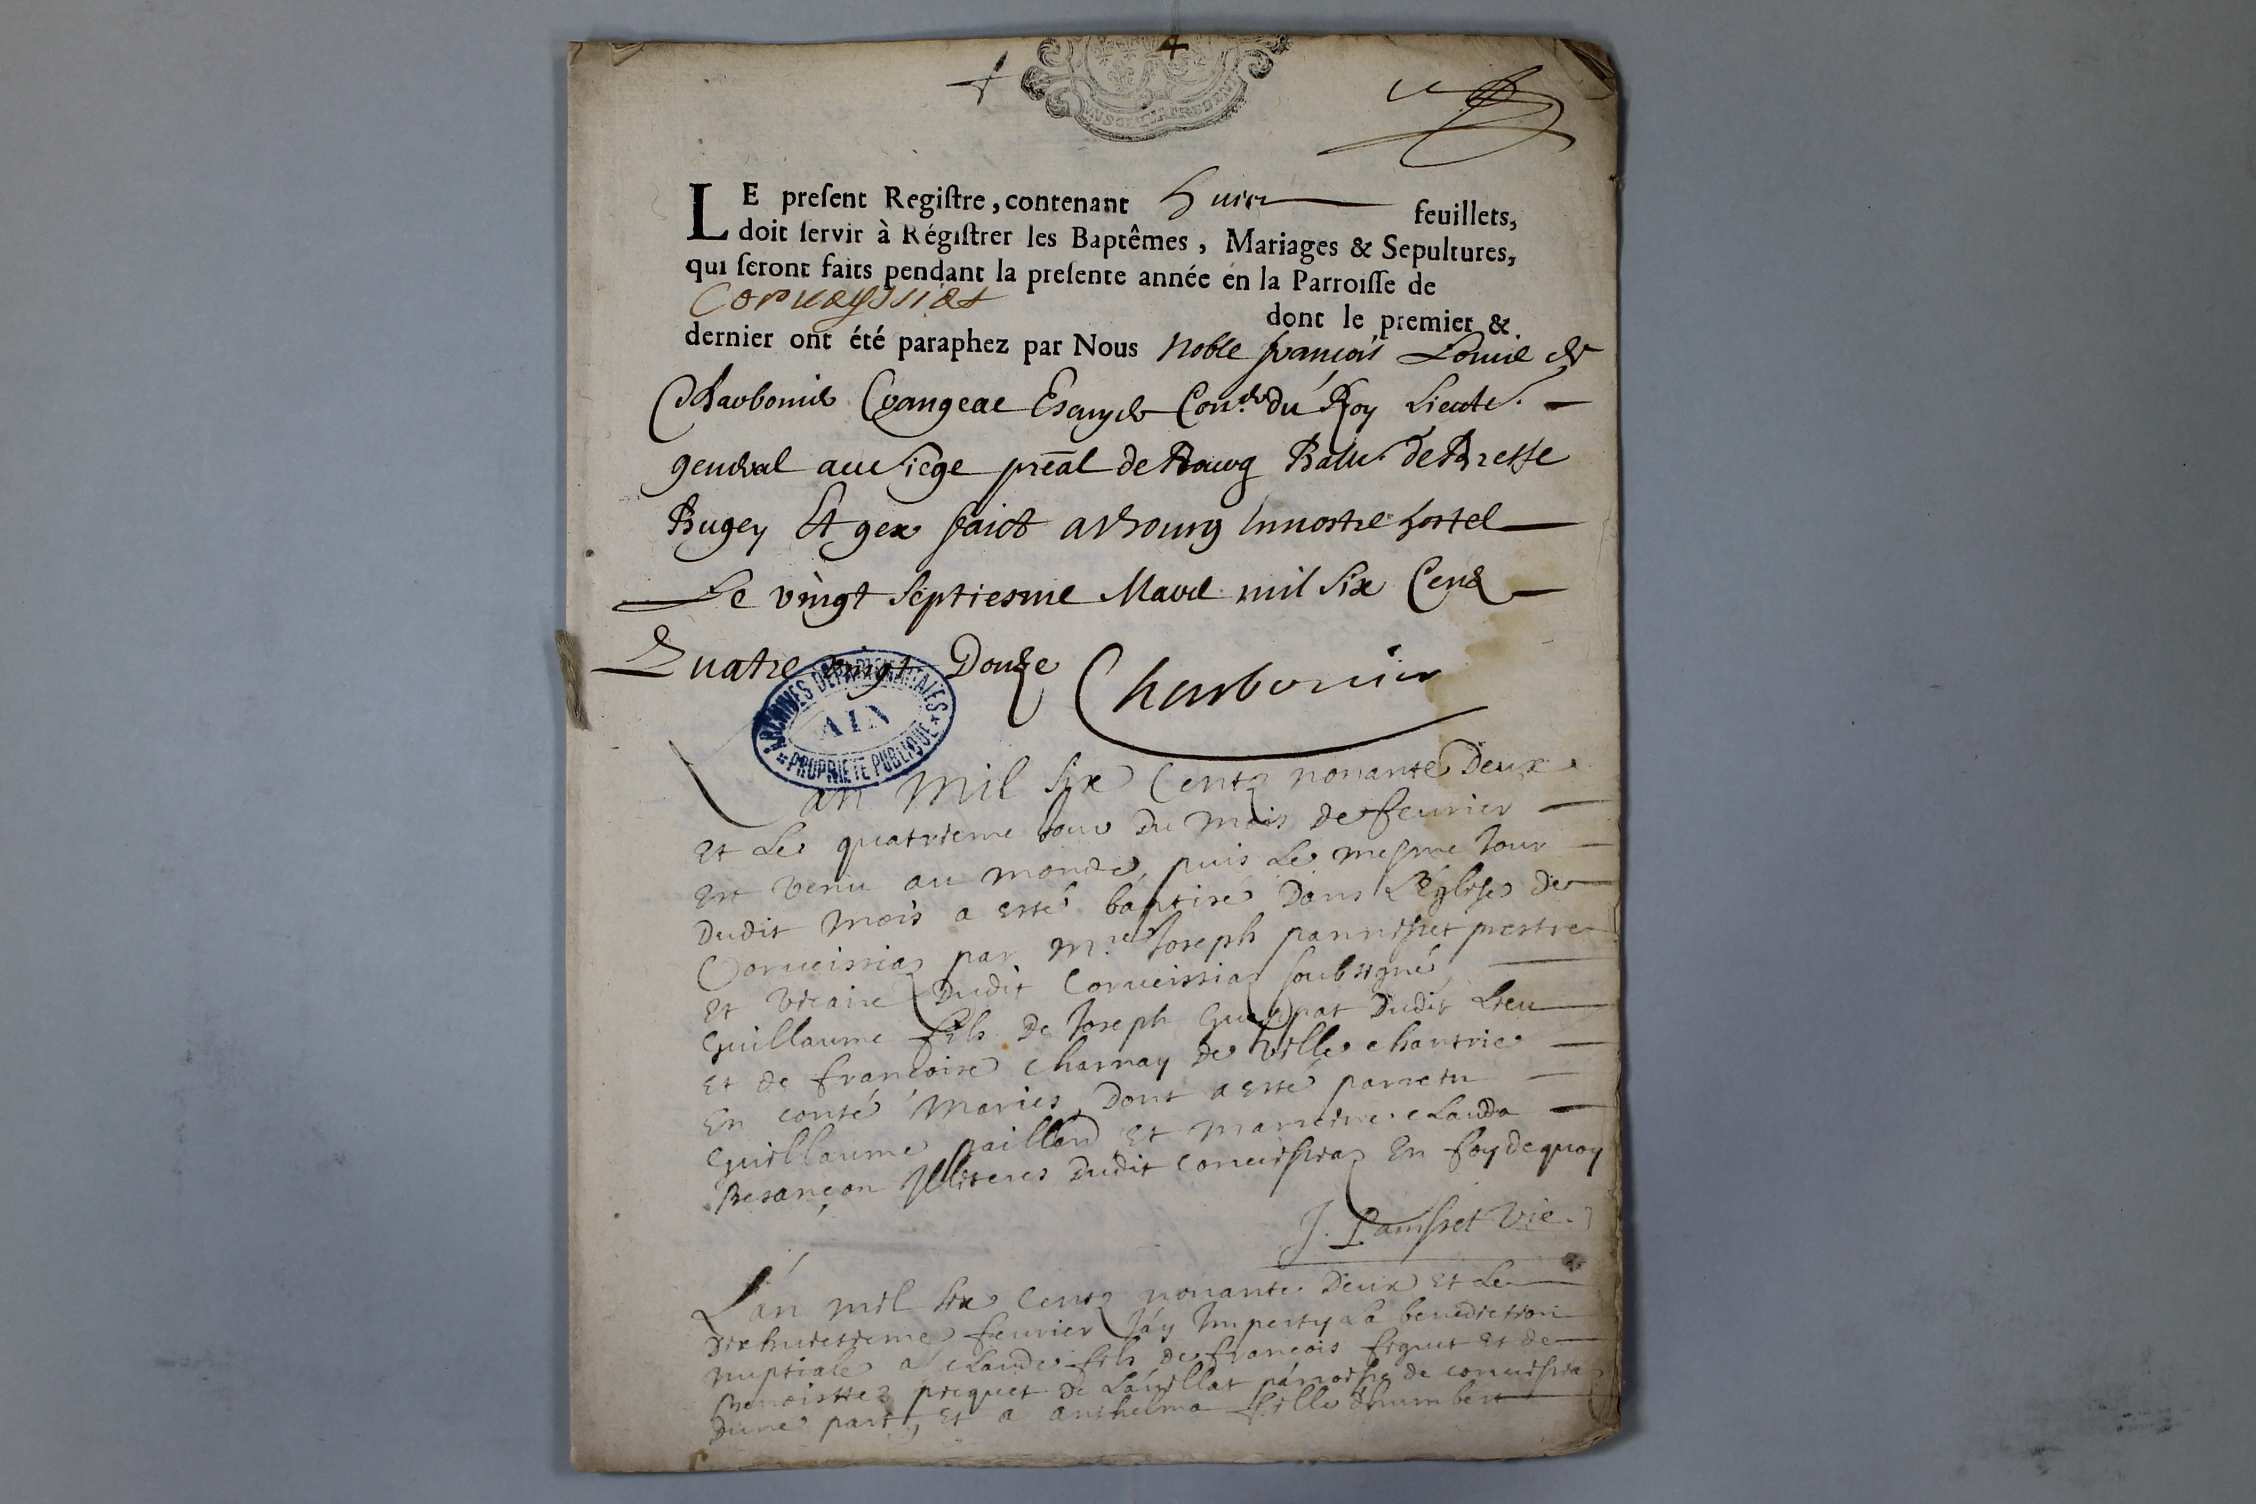 LE present Registre, contenant huict feuillets,
doit servir à Régistrer les Baptêmes, Mariages & Sepultures,
qui seront faits pendant la presente année en la Parroisse de
Corveyssiat
dont le premier &
dernier ont été paraphez par Nous Noble françois Louis de
Charbonnier Crangeac Escuyer Con.er du Roy Lieute.
general au siege preal de Bourg Balle. de Bresse
Bugey Et gex faict a Bourg en nostre hostel
Le vingt septiesme Mars mil six Cens
Quatre vingt Douze Charbonnier
ARCHIVES DEPARTEMENTALES
AIN
PROPRIETE PUBLIQUE
Lan Mil six Centz nonante Deux
Et Le quatrieme Jour Du Mois De feurier
Est Venu au monde, puis Le mesme Jour
Dudit Mois a esté baptisé Dans L'Eglise De
Corueissia par M.re Joseph pannisset prestre
Et Vicaire Dudit Corueissia soubsigné
Guillaume fils De Joseph Dudit Lieu
Et de francoise Charnay de Ville chantrie
En conté Mariés, Dont a esté parrein
Guillaume paillard Et Marreine Clauda
Besançon Illiteres Dudit Corueissia En foy de quoy
J. Panisset Vic.
L'an mil six Centz nonante Deux Et Le
Dixhuictieme feurier J'ay Imperty La benediction
nuptiale a Claude fils De francois figuet Et de
Benoistte piquet De La parroisse de corueissia
Dune part, Et a Anthelma fille d'humbert